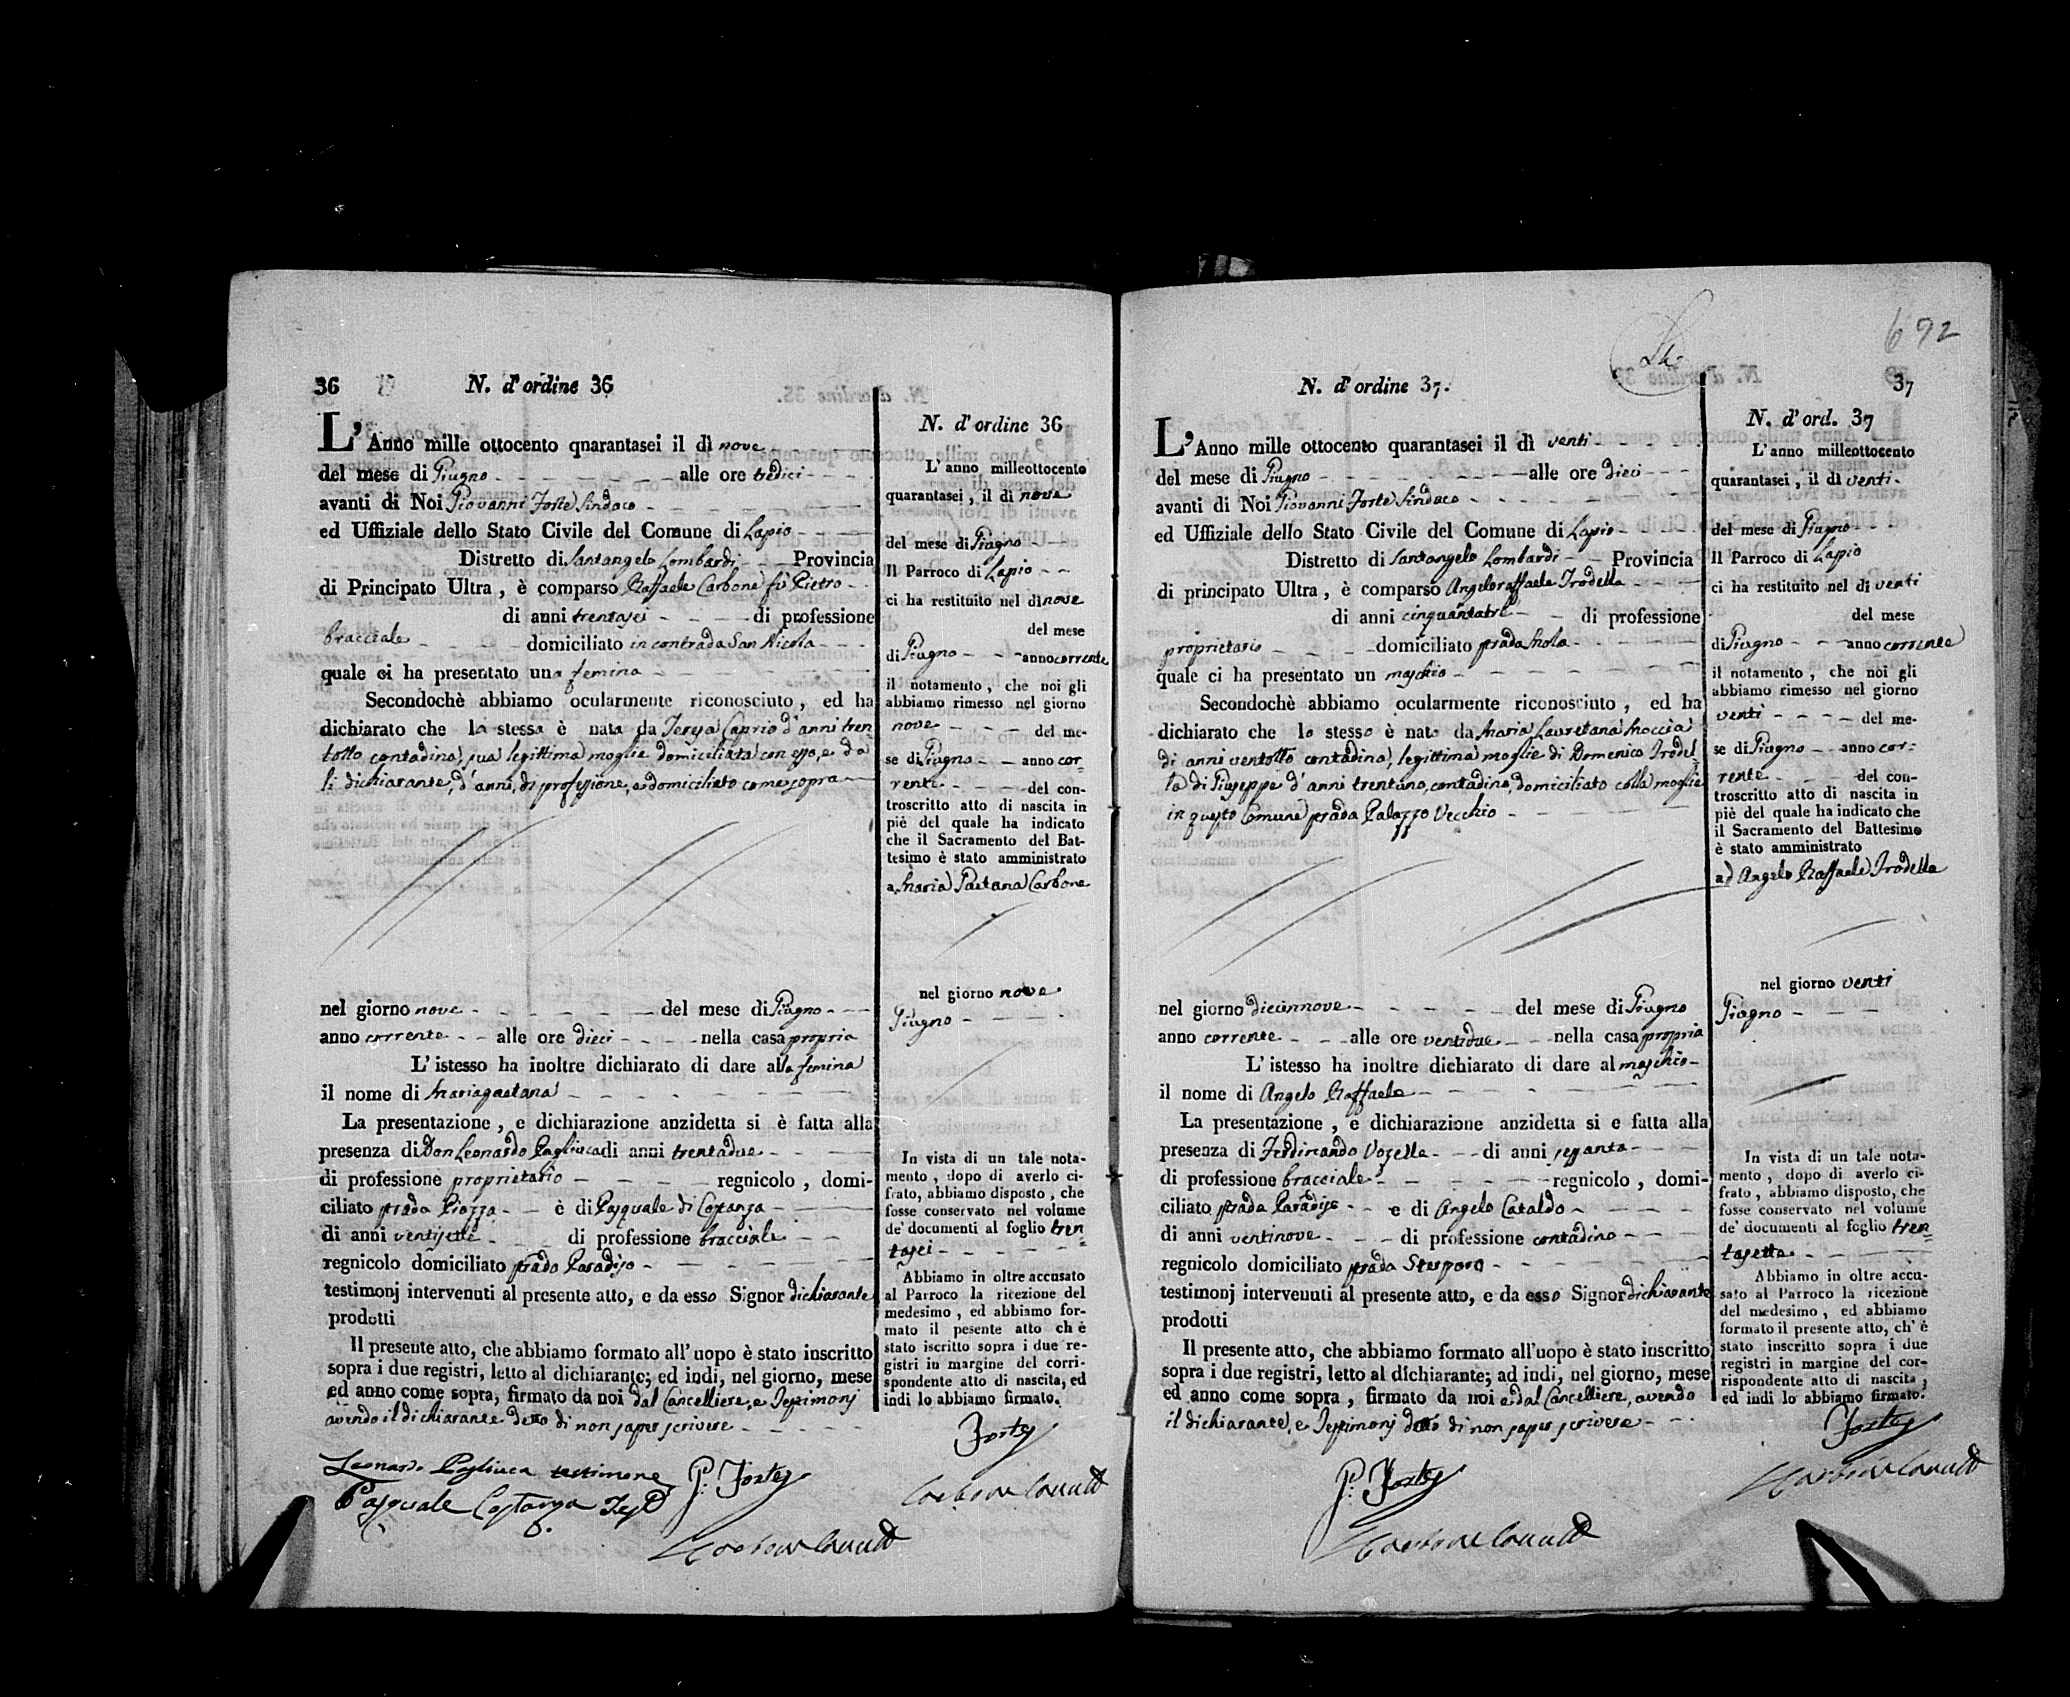 36
N. d' ordine 36
L'Anno mille ottocento quarantasei il dì nove
del mese di Giugno alle ore tredici
avanti di Noi Giovanni Forte Sindaco
ed Uffiziale dello Stato Civile del Comune di Lapio
Distretto di Santangelo Lombardi Provincia
di Principato Ultra, è comparso Raffaele Carbone fù Pietro
di anni trentasei di professione
bracciale domiciliato in contrada San Nicola
quale ci ha presentato una femina
Secondochè abbiamo ocularmente riconosciuto, ed ha
dichiarato che la stessa è nata da Teresa Caprio d'anni tren
totto contadina, sua legittima moglie domiciliata con esso, e da
lì dichiarante, d'anni, di professione, e domiciliato come sopra
nel giorno nove del mese di Giugno
anno corrente alle ore dieci nella casa propria
L'istesso ha inoltre dichiarato di dare alla femina
il nome di Mariagaetana
La presentazione, e dichiarazione anzidetta si è fatta alla
presenza di Don Leonardo Pagliuca di anni trentadue
di professione proprietario regnicolo, domi-
ciliato strada Piazza è di Pasquale di Costanza
di anni ventisette di professione bracciale
regnicolo domiciliato strada Paradiso
testimonj intervenuti al presente atto, e da esso Signor dichiarante
prodotti
Il presente atto, che abbiamo formato all'uopo è stato inscritto
sopra i due registri, letto al dichiarante; ed indi, nel giorno, mese
ed anno come sopra, firmato da noi dal Cancelliere, e Testimonj
avendo il dichiarante detto di non saper scrivere
Leonardo Pagliuca testimone
Pasquale Costanza
G. Forte
N. d' ordine 36
L' anno milleottocento
quarantasei, il dì nove
del mese di Giugno
Il Parroco di Lapio
ci ha restituito nel dì nove
del mese
di Giugno anno corrente
il notamento, che noi gli
abbiamo rimesso nel giorno
nove del me-
se di Giugno anno cor-
rente del con-
troscritto atto di nascita in
piè del quale ha indicato
che il Sacramento del Bat-
tesimo è stato amministrato
a Maria Gaetana Carbone
nel giorno nove
Giugno
In vista di un tale nota-
mento, dopo di averlo ci-
frato, abbiamo disposto, che
fosse conservato nel volume
de' documenti al foglio tren
tasei
Abbiamo in oltre accusato
al Parroco la ricezione del
medesimo, ed abbiamo for-
mato il pesente atto ch è
stato iscritto sopra i due re-
gistri in margine del corri-
spondente atto di nascita, ed
indi lo abbiamo firmato.
Forte
692
37
N. d' ordine 37.
L'Anno mille ottocento quarantasei il dì venti
del mese di Giugno alle ore dieci
avanti di Noi Giovanni Forte Sindaco
ed Uffiziale dello Stato Civile del Comune di Lapio
Distretto di Santangelo Lombardi Provincia
di principato Ultra, è comparso Angeloraffaele Trodella
di anni cinquantatrè di professione
proprietario domiciliato strada
quale ci ha presentato un maschio
Secondochè abbiamo ocularmente riconosciuto, ed ha
dichiarato che lo stesso è nato da Maria Lauretana Moccia
di anni ventotto contadina, legittima moglie di Domenico Trodel-
la di Giuseppe d'anni trentuno, contadino, domiciliato colla moglie
in questo Comune strada Palazzo Vecchio
nel giorno diecinnove del mese di Giugno
anno corrente alle ore ventidue nella casa propria
L'istesso ha inoltre dichiarato di dare al maschio
il nome di Angelo Raffaele
La presentazione, e dichiarazione anzidetta si e fatta alla
presenza di Ferdinando Vozella di anni sessanta
di professione bracciale regnicolo, domi-
ciliato strada Paradiso e di Angelo Cataldo
di anni ventinove di professione contadino
regnicolo domiciliato strada
testimonj intervenuti al presente atto, e da esso Signor dichiarante
prodotti
Il presente atto, che abbiamo formato all'uopo è stato inscritto
sopra i due registri, letto al dichiarante; ad indi, nel giorno, mese
ed anno come sopra, firmato da noi e dal Cancelliere, avendo
il dichiarante, e Testimonj detto di non saper scrivere
G. Forte
N. d' ord. 37
L' anno milleottocento
quarantasei, il dì venti
del mese di Giugno
Il Parroco di Lapio
ci ha restituito nel dì venti
del mese
di Giugno anno corrente
il notamento, che noi gli
abbiamo rimesso nel giorno
venti del me-
se di Giugno anno cor-
rente del con-
troscritto atto di nascita in
piè del quale ha indicato che
il Sacramento del Battesimo
è stato amministrato
ad Angelo Raffaele Trodella
nel giorno venti
Giugno
In vista di un tale nota-
mento, dopo di averlo ci-
frato, abbiamo disposto, che
fosse conservato nel volume
de' documenti al foglio tren
tasette
Abbiamo in oltre accu-
sato al Parroco la ricezione
del medesimo, ed abbiamo
formato il presente atto, ch' è
stato inscritto sopra i due
registri in margine del cor-
rispondente atto di nascita,
ed indi lo abbiamo firmato.
Forte